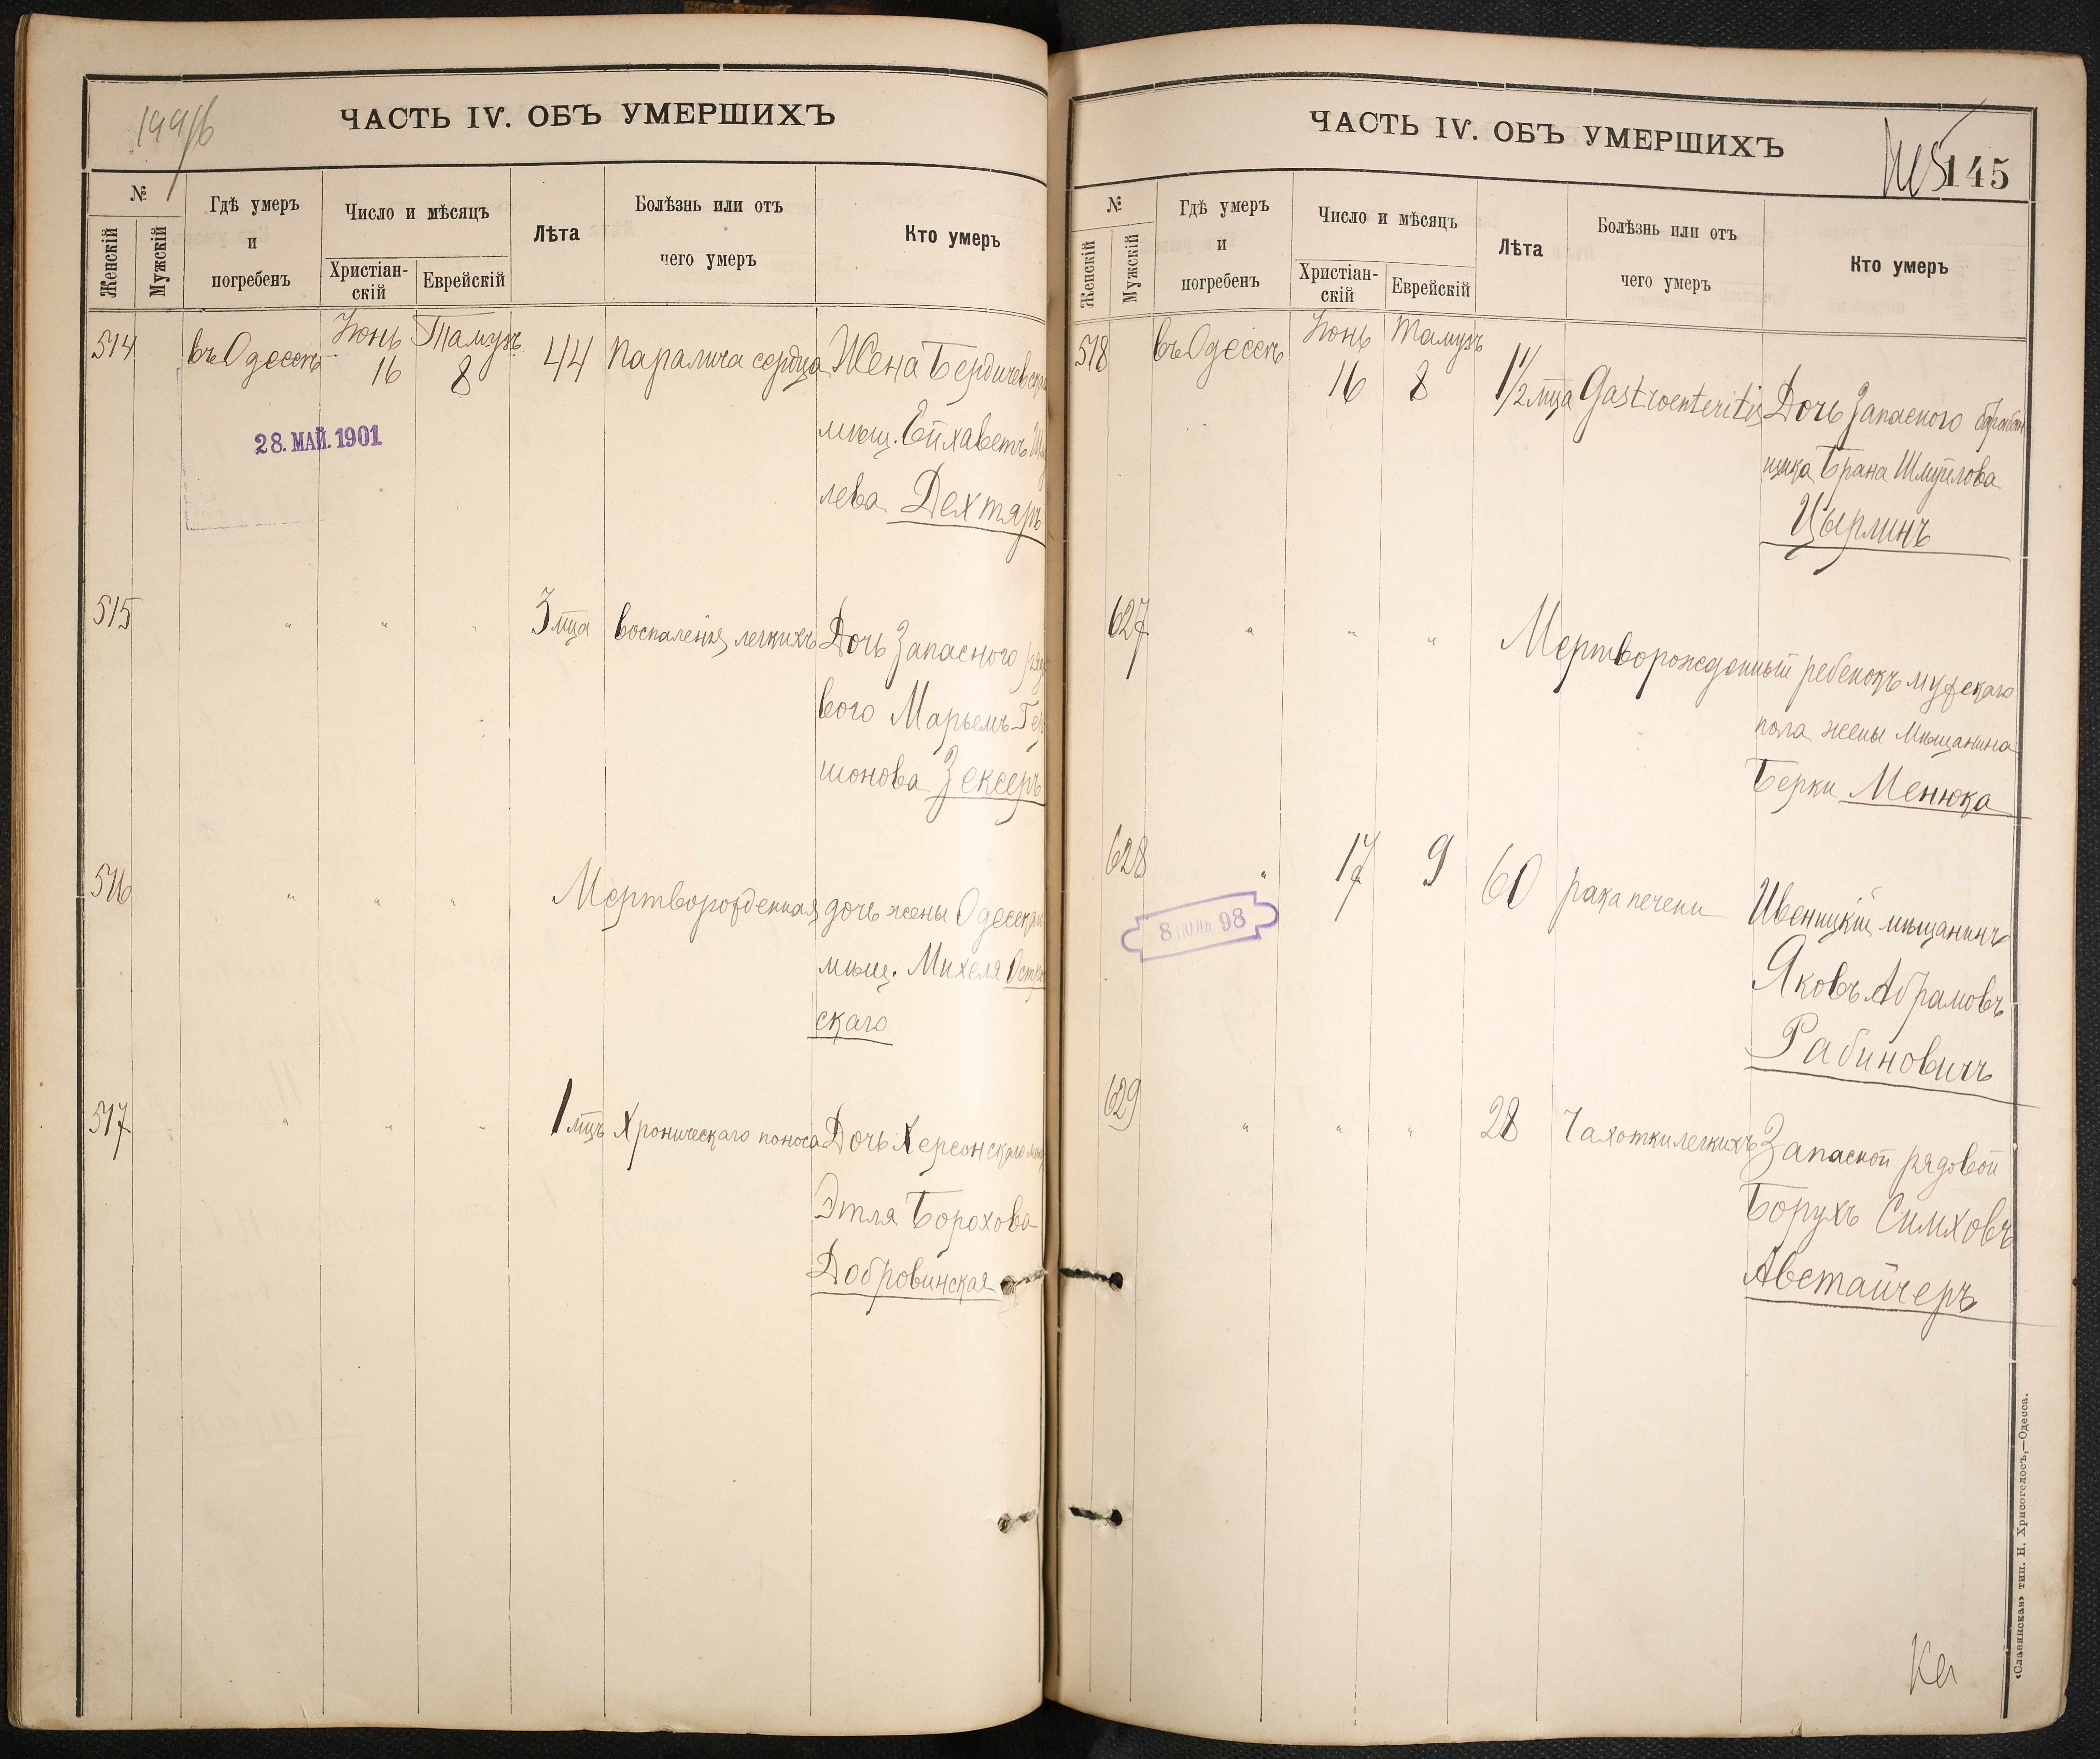 199/6
ЧАСТЬ IV. ОБЪ УМЕРШИХЪ
№
Женскій
Мужскій
Гдѣ умеръ
и
погребенъ
Число и мѣсяцъ
Христіан-
скій
Еврейскій
Лѣта
Болѣзнь или отъ
чего умеръ
Кто умеръ
514 въ Одессѣ Іюнь 16 Тамузъ 8 44 паралича сердца Жена Бердичевск
мѣщ.
лева Дехтяръ
28. МАЙ. 1901
515 " " " 3 мца воспаленія легкихъ Дочь Запасного ряд
вого Марьемъ Гер
шонова Зексеръ
516 " " " Мертворожденная дочь жены Одесск
мѣщ. Михеля Остр
скаго
517 " " " 1 мцъ Хроническаго поноса Дочь Херсонскаго мѣщ
Этля Борохова
Добровинская
ЧАСТЬ IV. ОБЪ УМЕРШИХЪ
145
№
Женскій
Мужскій
Гдѣ умеръ
и
погребенъ
Число и мѣсяцъ
Христіан-
скій
Еврейскій
Лѣта
Болѣзнь или отъ
чего умеръ
Кто умеръ
518 въ Одессѣ Іюнь 16 Тамузъ 8 1 1/2 мца Gastroenteritis Дочь Запасного барабан
щика Брана Шмуйлова
Цырлинъ
627 " " " Мертворожденный ребенокъ мужскаго
пола жены Мѣщанина
Берки Менюка
628 " 17 9 60 рака печени мѣщанинъ
Яковъ Абрамовъ
Рабиновичъ
8 ІЮНЬ 98
629 " " " 28 Чахотки легкихъ Запасной рядовой
Борухъ Симховъ
Австайчеръ
«Славянская» тип. Н. Хрисогелосъ,—Одесса.